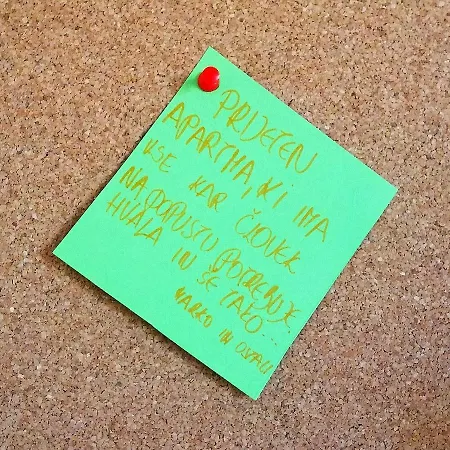 PRIJETEN
APARTMA, KI IMA
VSE KAR ČLOVEK
NA DOPUSTU POTREBUJE
HVALA IN ŠE TAKO...
MARKO IN OSTALI